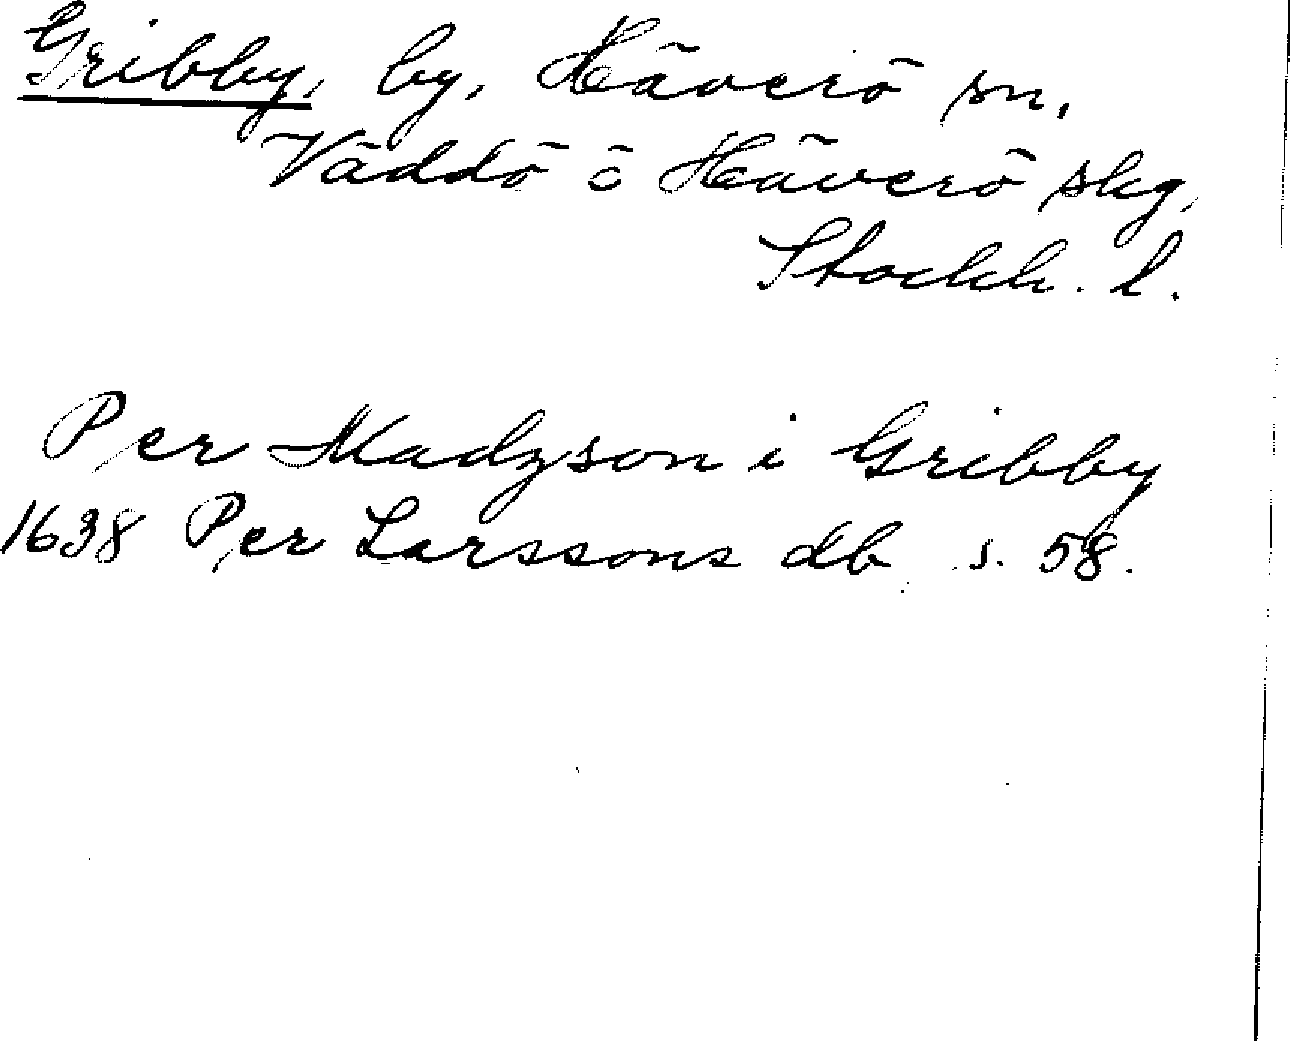 Gribby, by, Häverö sn,
Väddö o Häverö skg,
Stockh. l.
Per Madzson i Gribby
1638 Per Larssons db s. 58.